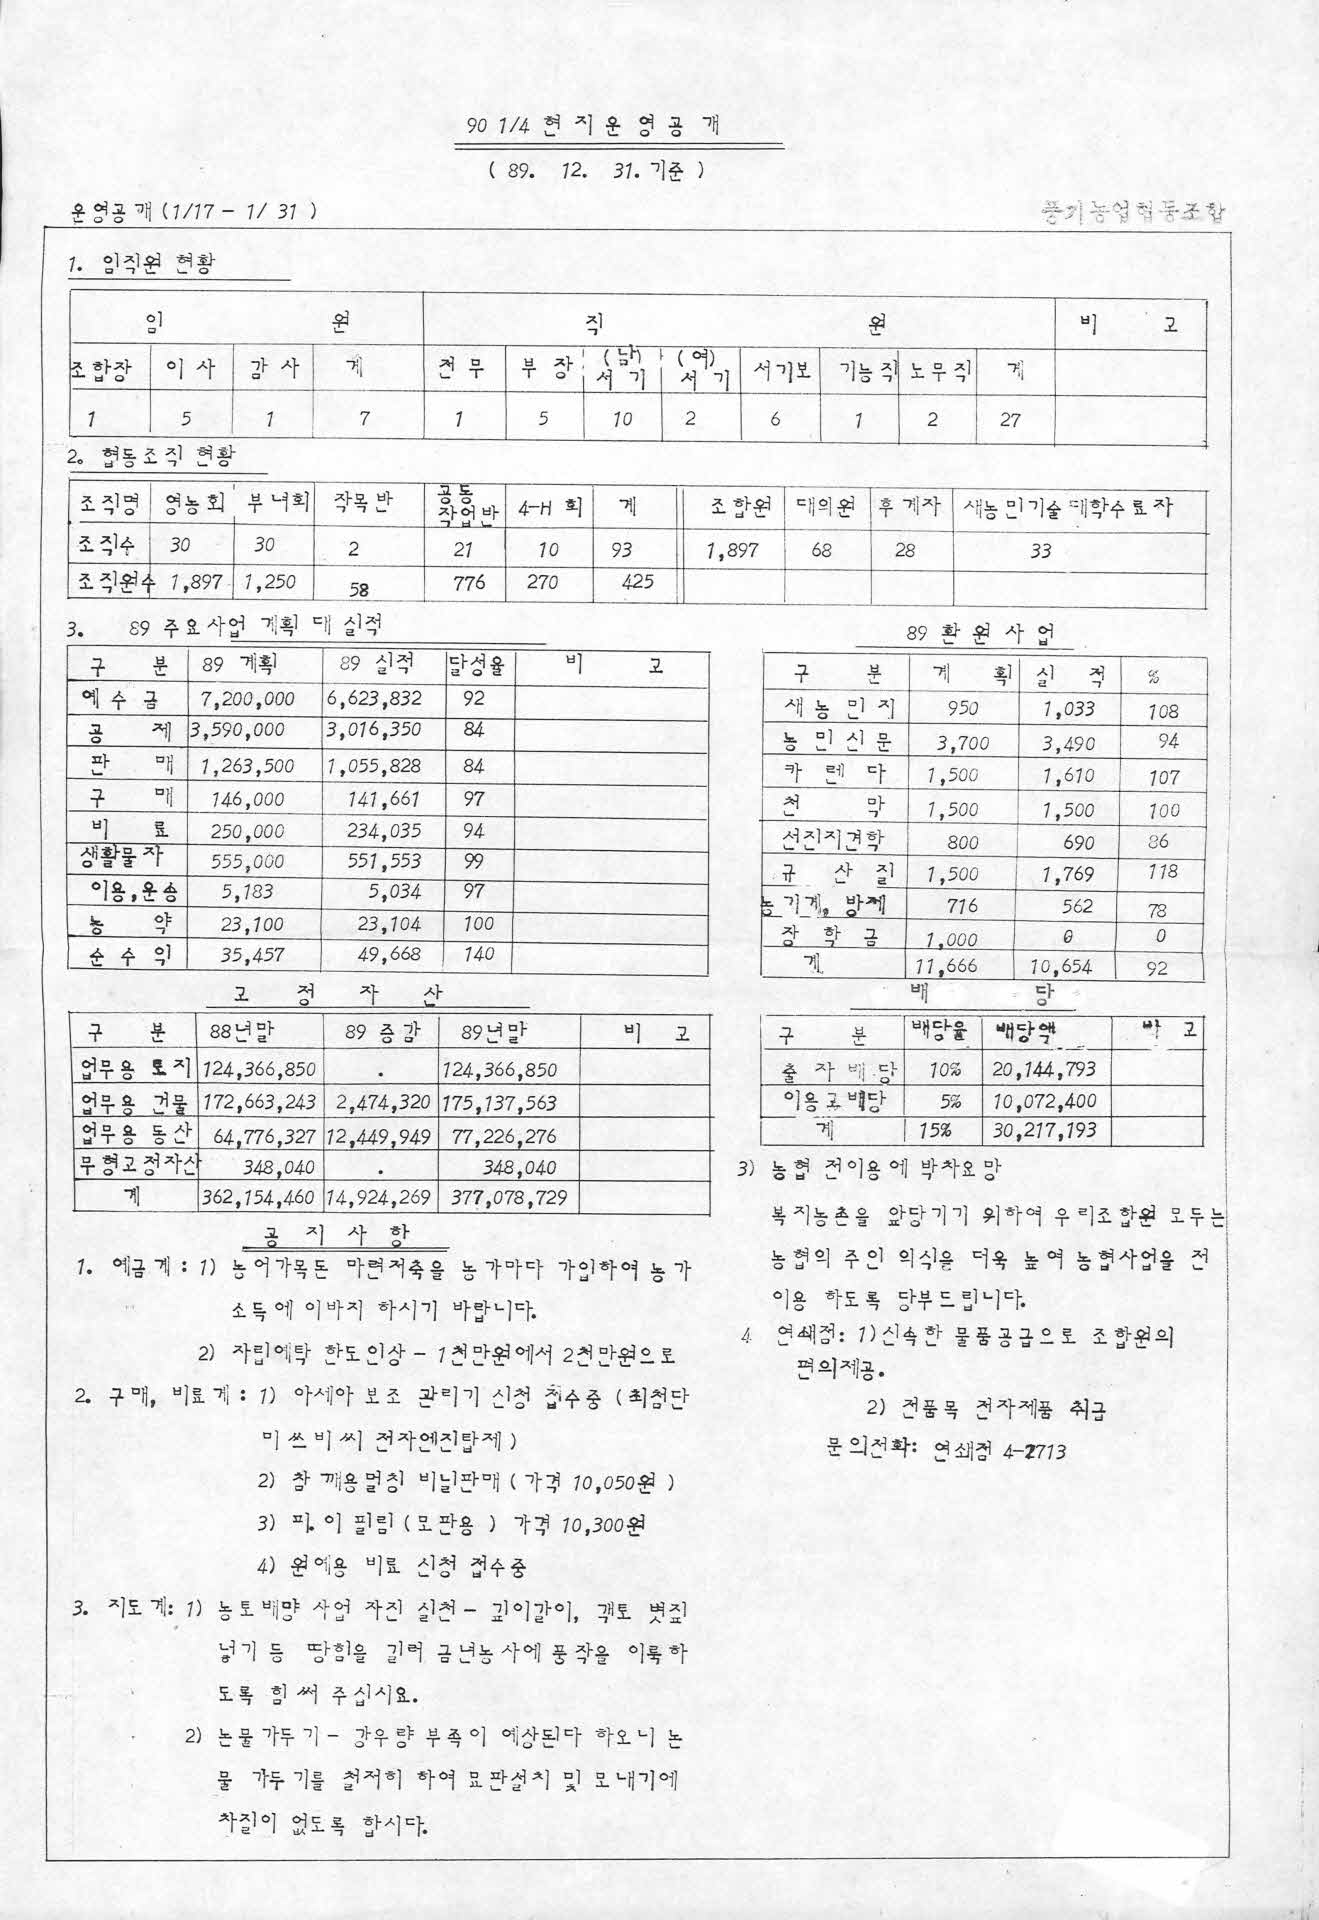 90 1/4 현지운영공개
( 89. 12. 31. 기준 )
운영공개 (1/17 - 1/ 31 )
풍기농업협동조합
1. 임직원 현황
임 원 직 원 비 고
조합장 이 사 감 사 계 전 무 부 장 (남) 서 기 (여) 서 기 서기보 기능직 노무직 계
1 5 1 7 1 5 10 2 6 1 2 27
2. 협동조직 현황
조직명 영농회 부녀회 작목반 공동 작업반 4-H 회 계 조합원 대의원 후계자 새농민기술대학수료자
조직수 30 30 2 21 10 93 1,897 68 28 33
조직원수 1,897 1,250 58 776 270 425
3. 89 주요사업 계획 대 실적
구 분 89 계획 89 실적 달성율 비 고
예 수 금 7,200,000 6,623,832 92
공 제 3,590,000 3,016,350 84
판 매 1,263,500 1,055,828 84
구 매 146,000 141,661 97
비 료 250,000 234,035 94
생활물자 555,000 551,553 99
이용,운송 5,183 5,034 97
농 약 23,100 23,104 100
순 수 익 35,457 49,668 140
89 환원사업
구 분 계 획 실 적 %
새 농 민 지 950 1,033 108
농 민 신 문 3,700 3,490 94
카 렌 다 1,500 1,610 107
천 막 1,500 1,500 100
선진지견학 800 690 86
규 산 질 1,500 1,769 118
농기계, 방제 716 562 78
장 학 금 1,000 0 0
계 11,666 10,654 92
고 정 자 산
구 분 88년말 89 증감 89년말 비 고
업무용 토지 124,366,850 . 124,366,850
업무용 건물 172,663,243 2,474,320 175,137,563
업무용 동산 64,776,327 12,449,949 77,226,276
무형고정자산 348,040 . 348,040
계 362,154,460 14,924,269 377,078,729
배 당
구 분 배당율 배당액 비 고
출 자 배 당 10% 20,144,793
이용고배당 5% 10,072,400
계 15% 30,217,193
공 지 사 항
1. 예금계 : 1) 농어가목돈 마련저축을 농가마다 가입하여 농가
소득에 이바지 하시기 바랍니다.
2) 자립예탁 한도인상 - 1천만원에서 2천만원으로
2. 구매, 비료계 : 1) 아세아 보조 관리기 신청 접수중 (최첨단
미쓰비씨 전자엔진탑제)
2) 참깨용멀칭 비닐판매 ( 가격 10,050원 )
3) 피.이 필림 (모판용 ) 가격 10,300원
4) 원예용 비료 신청 접수중
3. 지도계: 1) 농토배양 사업 자진 실천 - 깊이갈이, 객토 볏짚
넣기 등 땅힘을 길러 금년농사에 풍작을 이룩하
도록 힘써 주십시요.
2) 논물가두기 - 강우량 부족이 예상된다 하오니 논
물 가두기를 철저히 하여 묘판설치 및 모내기에
차질이 없도록 합시다.
3) 농협 전이용에 박차오망
복지농촌을 앞당기기 위하여 우리조합원 모두는
농협의 주인 의식을 더욱 높여 농협사업을 전
이용 하도록 당부드립니다.
4 연쇄점: 1)신속한 물품공급으로 조합원의
편의제공.
2) 전품목 전자제품 취급
문의전화: 연쇄점 4-2713